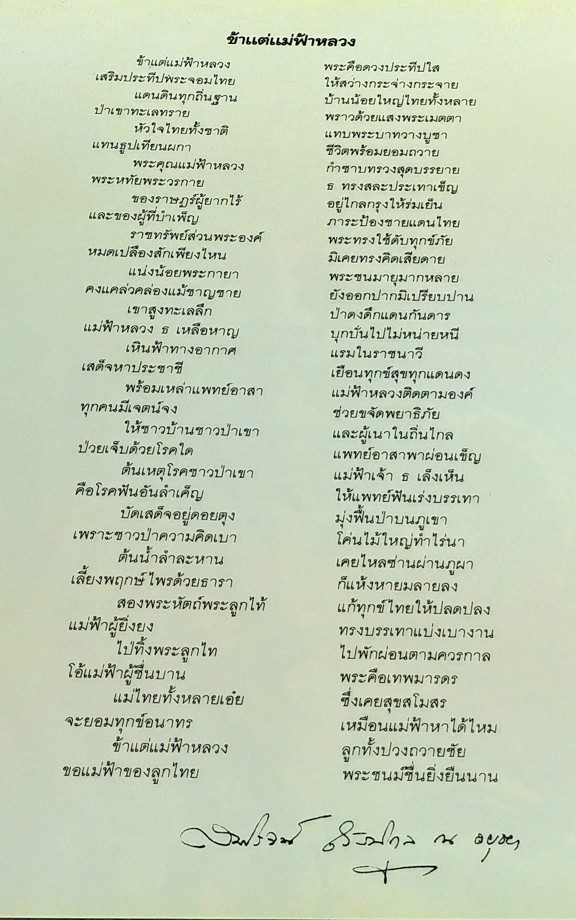 ข้าแต่แม่ฟ้าหลวง
ข้าแต่แม่ฟ้าหลวง พระคือดวงประทีปใส
เสริมประทีปพระจอมไทย ให้สว่างกระจ่างกระจาย
แดนดินทุกถิ่นฐาน บ้านน้อยใหญ่ไทยทั้งหลาย
ป่าเขาทะเลทราย พราวด้วยแสงพระเมตตา
หัวใจไทยทั้งชาติ แทบพระบาทวางบูชา
แทนธูปเทียนผกา ชีวิตพร้อมยอมถวาย
พระคุณแม่ฟ้าหลวง กำซาบทรวงสุดบรรยาย
พระหทัยพระวรกาย ธ ทรงสละประเทาเข็ญ
ของราษฎร์ผู้ยากไร้ อยู่ไกลกรุงให้ร่มเย็น
และของผู้ที่บำเพ็ญ ภาระป้องชายแดนไทย
ราชทรัพย์ส่วนพระองค์ พระทรงใช้ดับทุกข์ภัย
หมดเปลืองสักเพียงไหน มิเคยทรงคิดเสียดาย
แน่งน้อยพระกายา พระชนมายุมากหลาย
คงแคล่วคล่องแม้ชาญชาย ยังออกปากมิเปรียบปาน
เขาสูงทะเลลึก ป่าดงดึกแดนกันดาร
แม่ฟ้าหลวง ธ เหลือหาญ บุกบั่นไปไม่หน่ายหนี
เหินฟ้าทางอากาศ แรมในราชนาวี
เสด็จหาประชาชี เยือนทุกข์สุขทุกแดนดง
พร้อมเหล่าแพทย์อาสา แม่ฟ้าหลวงติดตามองค์
ทุกคนมีเจตน์จง ช่วยขจัดพยาธิภัย
ให้ชาวบ้านชาวป่าเขา และผู้เนาในถิ่นไกล
ป่วยเจ็บด้วยโรคใด แพทย์อาสาพาผ่อนเข็ญ
ต้นเหตุโรคชาวป่าเขา แม่ฟ้าเจ้า ธ เล็งเห็น
คือโรคฟันอันลำเค็ญ ให้แพทย์ฟันเร่งบรรเทา
บัดเสด็จอยู่ดอยตุง มุ่งฟื้นป่าบนภูเขา
เพราะชาวป่าความคิดเบา โค่นไม้ใหญ่ทำไร่นา
ต้นน้ำลำละหาน เคยไหลซ่านผ่านภูผา
เลี้ยงพฤกษ์ไพรด้วยธารา ก็แห้งหายมลายลง
สองพระหัตถ์พระลูกไท้ แก้ทุกข์ไทยให้ปลดปลง
แม่ฟ้าผู้ยิ่งยง ทรงบรรเทาแบ่งเบางาน
ไปทิ้งพระลูกไท ไปพักผ่อนตามควรกาล
โอ้แม่ฟ้าผู้ชื่นบาน พระคือเทพมารดร
แม่ไทยทั้งหลายเอ๋ย ซึ่งเคยสุขสโมสร
จะยอมทุกข์อนาทร เหมือนแม่ฟ้าหาได้ไหม
ข้าแต่แม่ฟ้าหลวง ลูกทั้งปวงถวายชัย
ขอแม่ฟ้าของลูกไทย พระชนม์ชื่นยิ่งยืนนาน
ณ อยุธยา